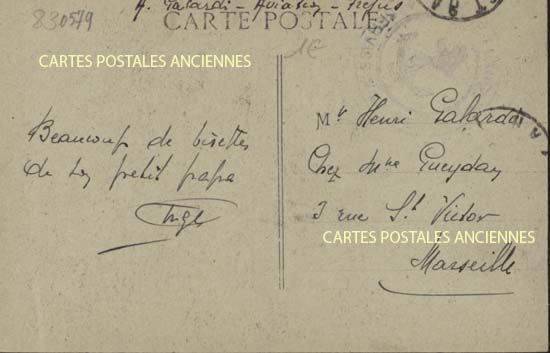 830579
A. Galardi - Aviation - Fréjus
CARTE POSTALE
1€
CARTES POSTALES ANCIENNES
Beaucoup de bisettes
de ton petit papa
Mr Henri Galardi
Chez Mme Gueydan
3 rue St. Victor
CARTES POSTALES ANCIENNES
Marseille